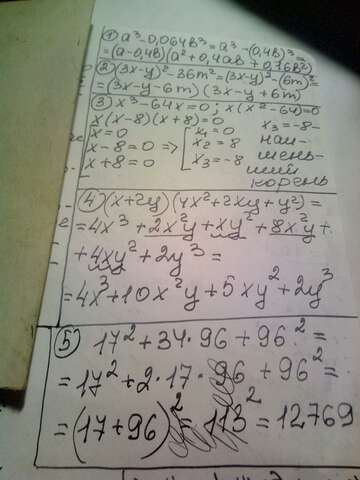 ① a³-0,064b³=a³-(0,4b)³=
=(a-0,4b)(a²+0,4ab+0,16b²)
② (3x-y)²-36m²=(3x-y)²-(6m)²=
=(3x-y-6m)(3x-y+6m)
③ x³-64x=0; x(x²-64)=0
x(x-8)(x+8)=0
x=0
x-8=0 ⇒
x+8=0
x₁=0
x₂=8
x₃=-8
x₃=-8-
наи-
мень-
ший
корень
④ (x+2y)(4x²+2xy+y²)=
=4x³+2x²y+xy²+8x²y+
+4xy²+2y³=
=4x³+10x²y+5xy²+2y³
⑤ 17²+34·96+96²=
=17²+2·17·96+96²=
=(17+96)²=113²=12769